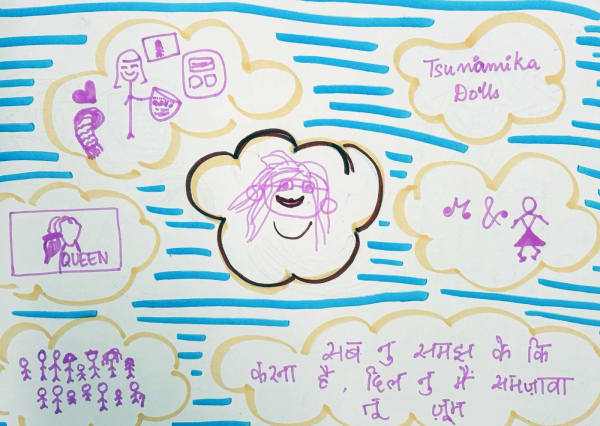 Tsunamika
Dolls
QUEEN
सब नु समझ के कि
करना है, दिल नु मैं समज़ावा
तूं ज़ूम